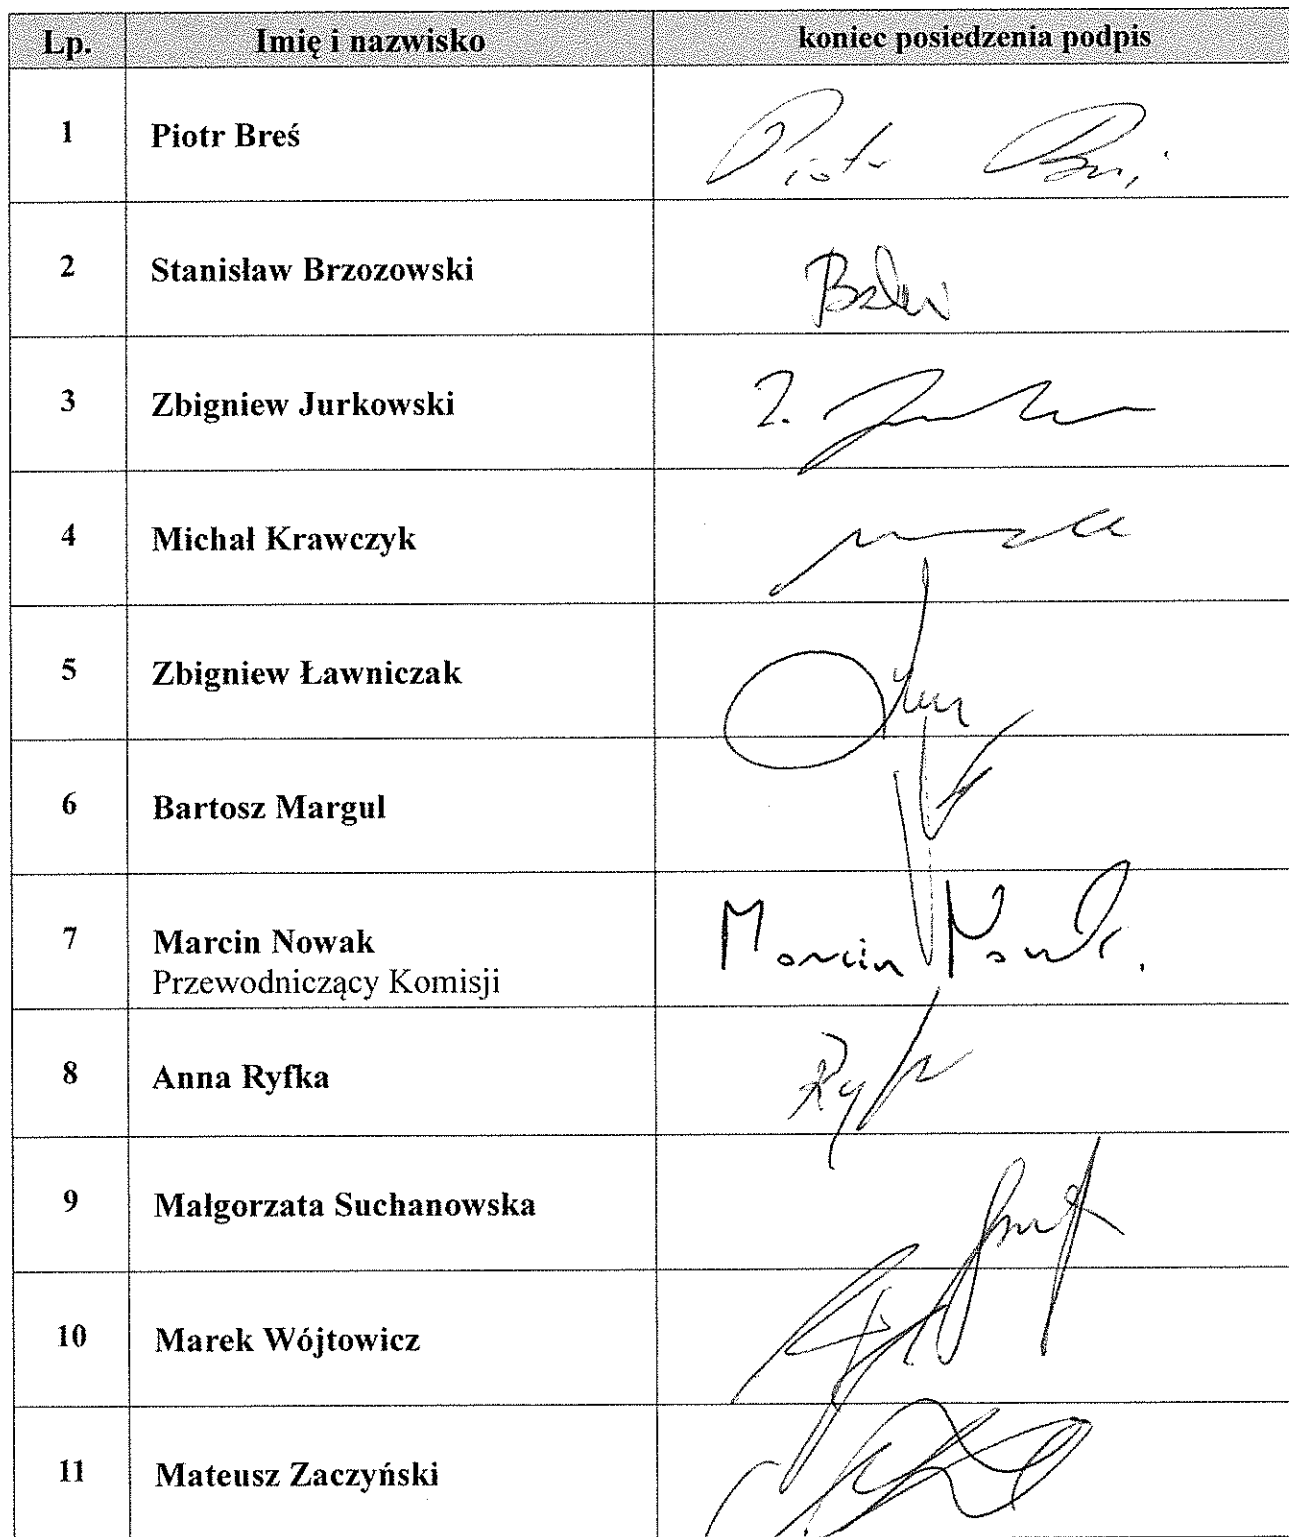 Lp. Imię i nazwisko koniec posiedzenia podpis
1 Piotr Breś Piotr
2 Stanisław Brzozowski
3 Zbigniew Jurkowski
4 Michał Krawczyk
5 Zbigniew Ławniczak
6 Bartosz Margul
7 Marcin Nowak Marcin Nowak.
Przewodniczący Komisji
8 Anna Ryfka
9 Małgorzata Suchanowska
10 Marek Wójtowicz
11 Mateusz Zaczyński